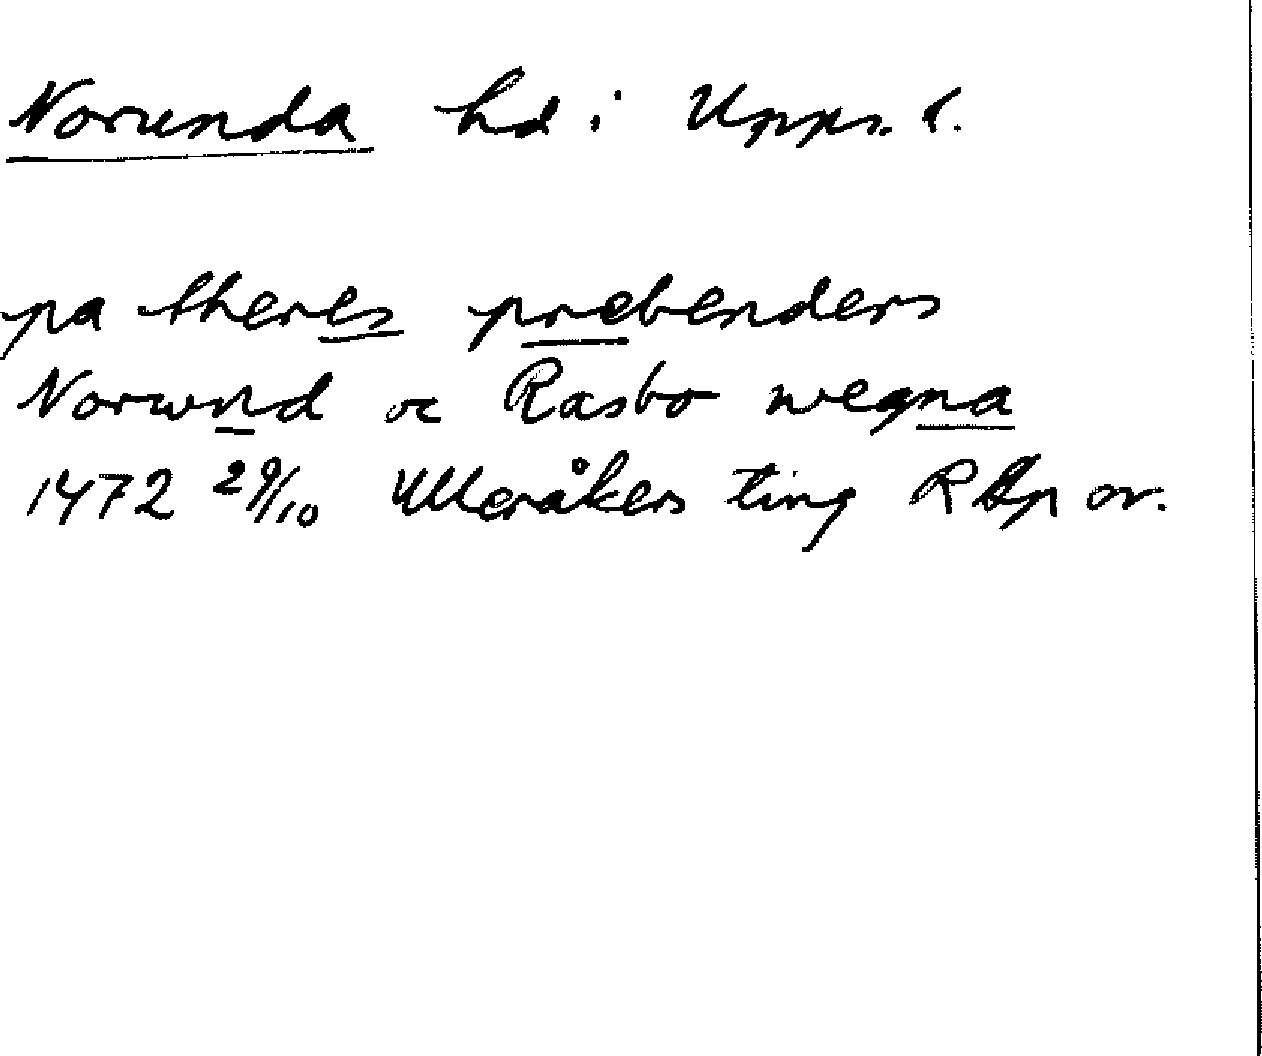 Norunda hd i Upps. l.
pa theres prebenders
Norwnd oc Rasbo wegna
1472 29/10 Ulleråkers ting RAp or.